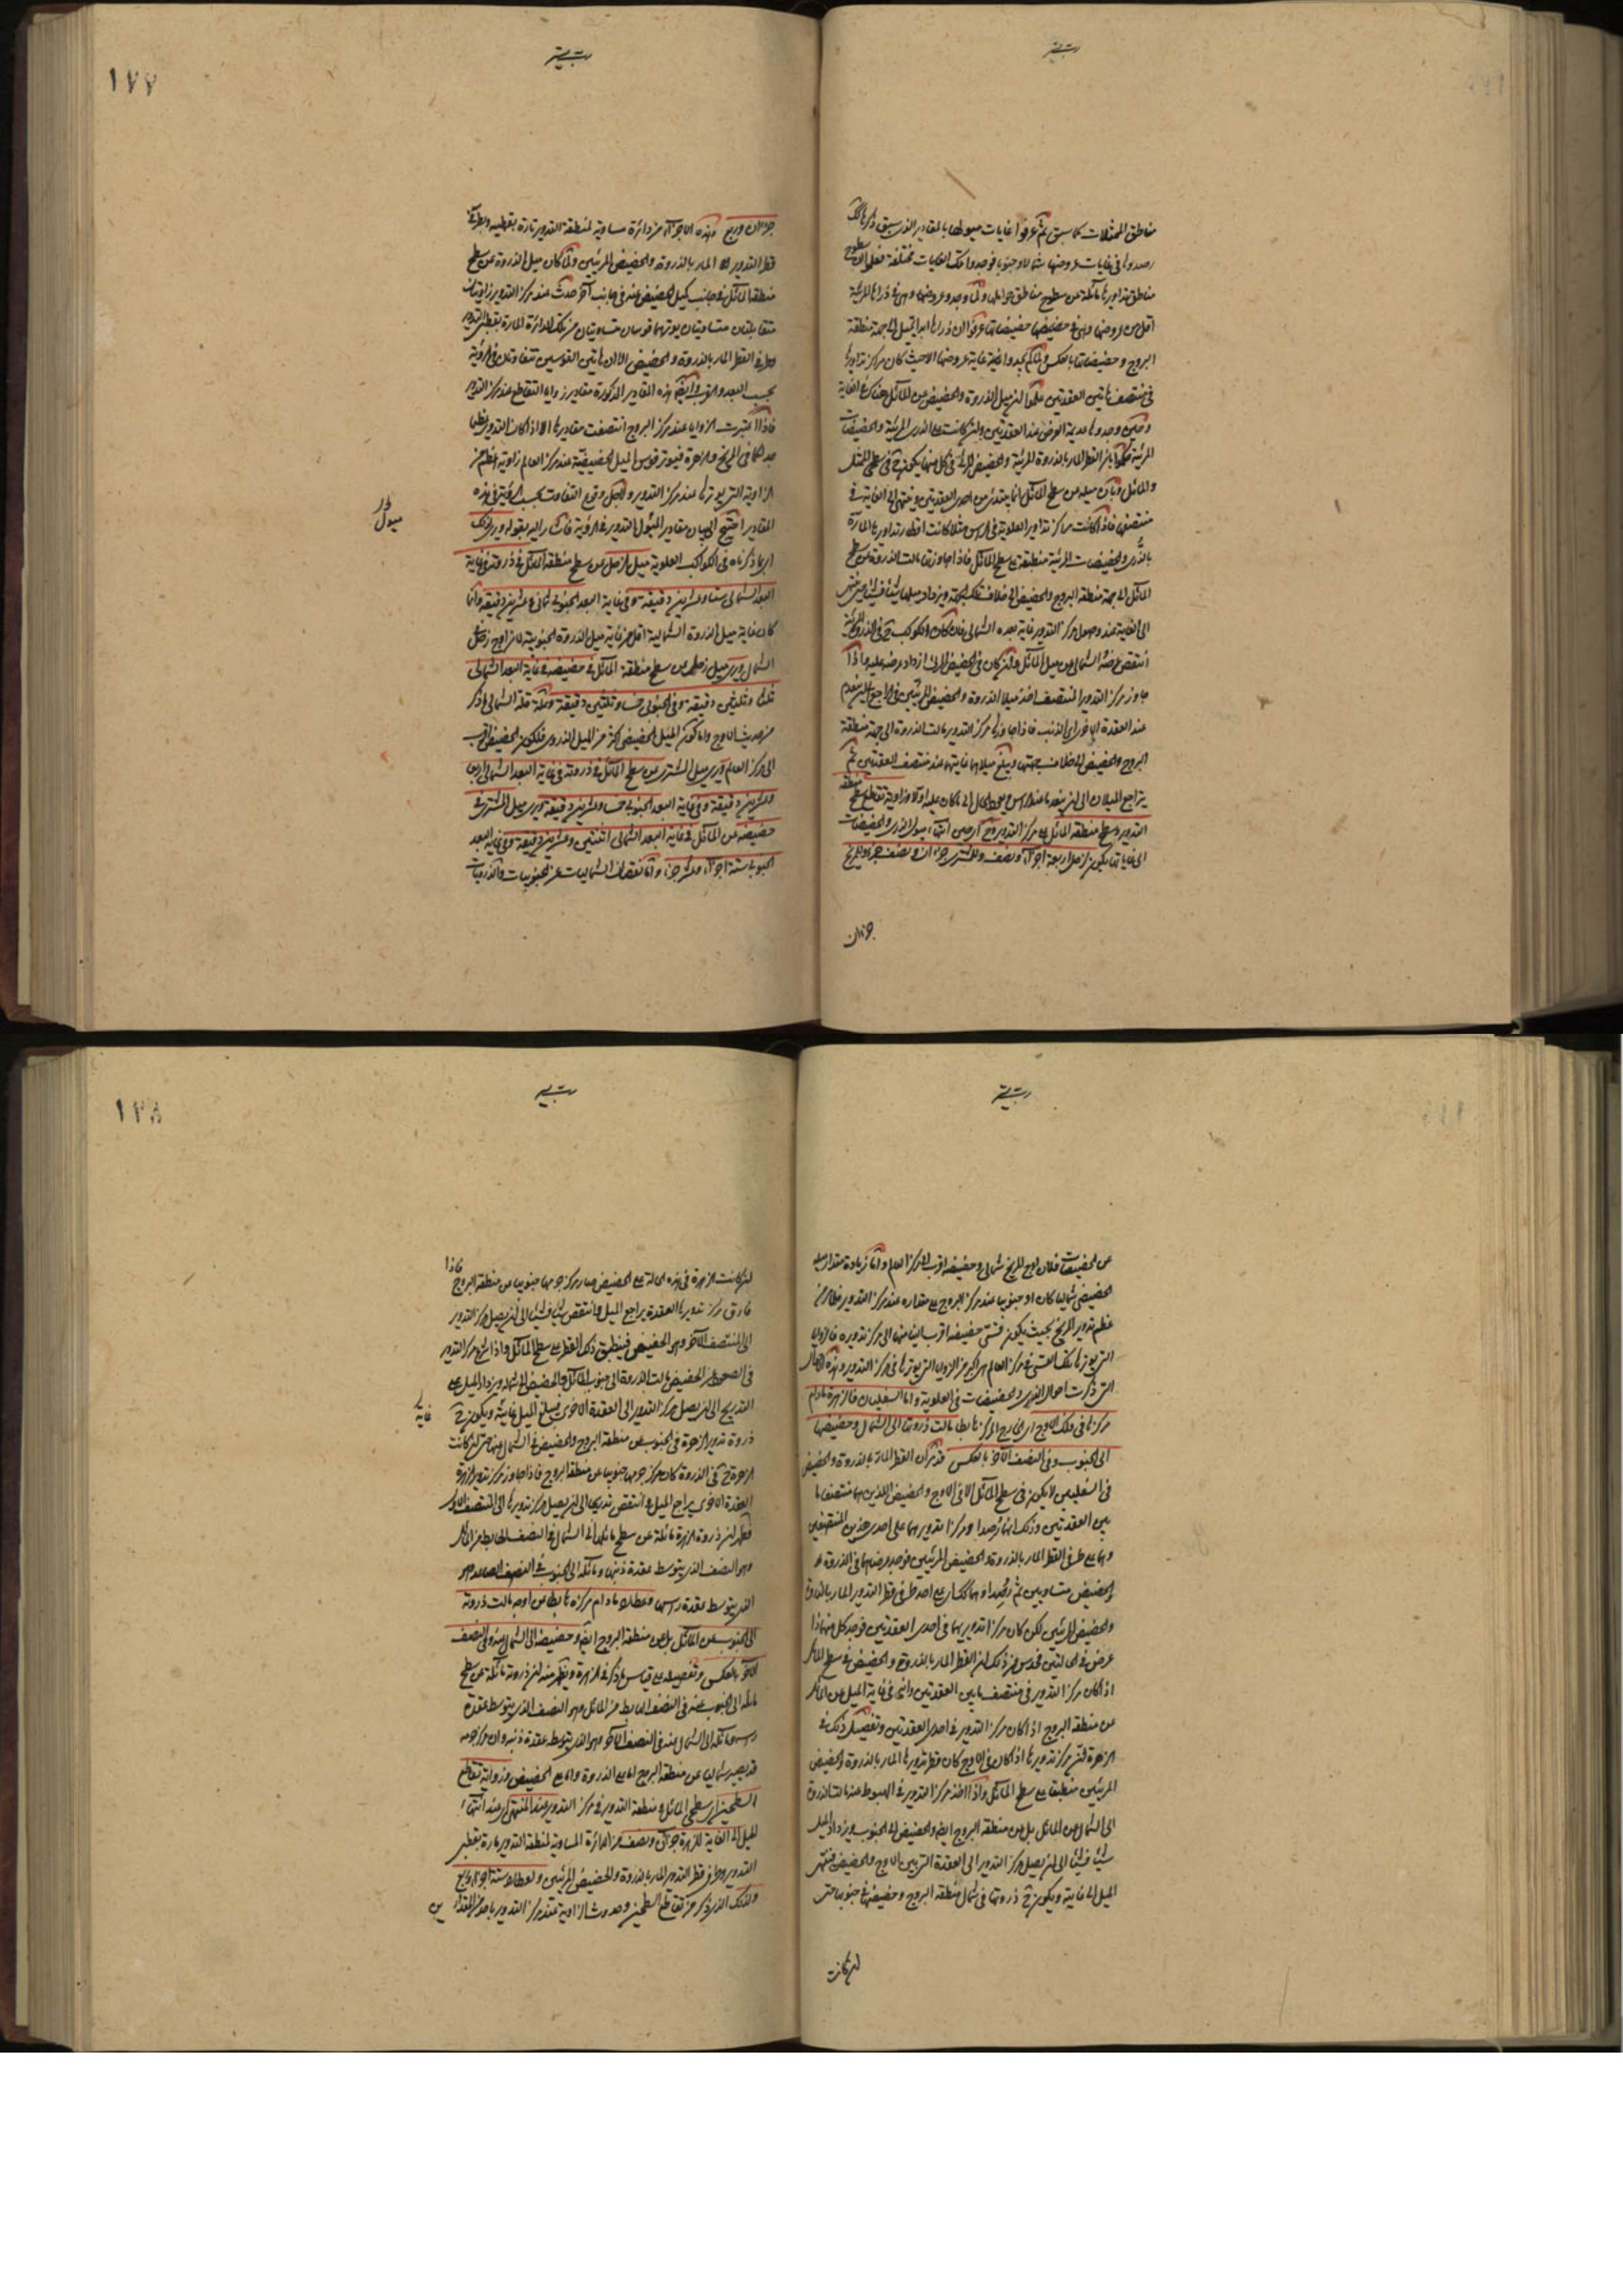 مناطق الممثلات كما سبق ثم عرفوا غايات ميولها بالمقادير الذى سبق ذكرها
رصدوها فى غايات عروضها شمالا وجنوبا فوجدوا تلك الغايات مختلفة فعلموا ان سطوح
مناطق تداويرها مائلة عن سطوح مناطق حواملها ولما وجدوا عروضها وهى فى ذراها المرئية
اقل من عروضها وهى فى حضيضها عرفوا ان ذراها ابدا تميل الى جهة منطقة
البروج و حضيضاتها بالعكس ولما لم يجدوا غاية عروضها الا حيث كان مراكز تداويرها
فى منتصف ما بين العقدتين علموا ان ميل الذروة والحضيض عن المائل هناك فى الغاية
وحين وجدوها عديمة العرض عند العقدتين وان كانت على الذرى المرئية والحضيضات
المرئية علموا ان القطر المار بالذروة المرئية والحضيض المرئى
والمائل وان ميله عن سطح المائل انما يبتدئ من احدى العقدتين وينتهى الى الغاية فى
منتصفها فاذا كانت مراكز تداوير العلوية فى الراس مثلا كانت اقطار تداويرها المارة
بالذرى والحضيضات المرئية منطبقة على سطح المائل فاذا جاوزتها مالت الذروة عن سطح
المائل الى جهة منطقة البروج والحضيض الى خلاف تلك الجهة ويزداد ميلهما شيئا فشيئا حتى ينتهى
الى الغاية عند وصول مركز التدوير غاية بعده الشمالى فان كان الكوكب ح فى الذروة المرئية
انتقص عرضه الشمالى عن ميل المائل وان كان فى الحضيض المرئى ازداد عرضه عليه واذا
جاوز مركز التدوير المنتصف اخذ ميلا الذروة والحضيض المرئيين فى التراجع الى ان ينعدم
عند العقدة الاخرى اى الذنب فاذا جاوزها مركز التدوير مالت الذروة الى جهة منطقة
البروج والحضيض الى خلاف جهتها ويبلغ ميلاهما غايتهما عند منتصف العقدتين ثم
يتراجع الميلان الى ان ينعدما عند الراس ويعود الحال الى ما كان عليه اولا وزاوية تقاطع سطح منطقة
التدوير وسطح منطقة المائل على مركز التدوير ح اى حين انتهاء ميول الذرى والحضيضات
الى غاياتها يكون لزحل اربعة اجزاء ونصف وللمشترى جزءان ونصف جزء وللمريخ
جزءان
١٧٧
جزءان وربع وهذه الاجزاء من دائرة مساوية لمنطقة التدوير مارة بقطبيه وبطرفى
قطر التدوير المار بالذروة والحضيض المرئيين ولما كان ميل الذروة عن سطح
منطقة المائل فى جانب كميل الحضيض عنه فى جانب آخر حدث عند مركز التدوير زاويتان
متقابلتان متساويتان يوترهما قوسان متساويتان من تلك الدائرة المارة بقطبى التدوير
وطرفى القطر المار بالذروة والحضيض الا ان هاتين القوسين تتفاوتان فى الرؤية
بحسب البعد والقرب وايضا هذه المقادير المذكورة مقادير زوايا التقاطع عند مركز التدوير
فاذا اعتبرت الزوايا عند مركز البروج انتقصت مقاديرها الا اذا كان التدوير عظيما
جدا كما فى المريخ والزهرة فيوتر قوس الميل الحضيضية عند مركز العالم زاوية اعظم من
الزاوية التى يوترها عند مركز التدوير ولاجل وقوع التفاوت بحسب الرؤية فى هذه
المقادير احتيج الى بيان مقادير الميول التداوير فى الرؤية فاشار اليه بقوله ويرى ذلك
اى ما ذكرناه فى الكواكب العلوية ميل زحل عن سطح منطقة المائل فى ذروته فى غاية
البعد الشمالى ستا وعشرين دقيقة وفى غاية البعد الجنوبى ثمانى وعشرين دقيقة وانما
كان غاية ميل الذروة الشمالية اقل من غاية ميل الذروة الجنوبية لان اوج زحل
الشمال ويرى ميل زحل عن سطح منطقة المائل فى حضيضه فى غاية البعد الشمالى
ثلثا وثلثين دقيقة وفى الجنوبى خمسا وثلثين دقيقة وعلة قلة الشمالى ما ذكر
من حديث الاوج واما كون الميل الحضيضى اكثر من الميل الذروى فلكون الحضيض اقرب
الى مركز العالم ويرى ميل المشترى عن سطح المائل فى ذروته فى غاية البعد الشمالى اربعا
وعشرين دقيقة وفى غاية البعد الجنوبى خمسا وعشرين دقيقة ويرى ميل المشترى فى
حضيضه عن المائل فى غاية البعد الشمالى اثنتين وعشرين دقيقة وفى غاية البعد
الجنوبى ستة اجزاء وعشر جزء واما نقصان الشماليات عن الجنوبيات والذرويات
عن الحضيضيات فلان اوج المريخ شمالى وحضيضه اقرب الى مركز العالم واما زيادة مقدار ميله
الحضيضى شماليا كان او جنوبيا عند مركز البروج على مقداره عند مركز التدوير فلما مر من
عظم تدوير المريخ بحيث يكون حضيضه اقرب الينا منها الى مركز تدويره فالزوايا
التى يوترها تلك القسى فى مركز العالم اكبر من الزوايا التى يوترها فى مركز التدوير وهذه الاحوال
التى ذكرت احوال الذرى والحضيضات فى العلوية واما السفليان فالزهرة ما دام
مركزها فى فلك الاوج اى الخارج المركز هابطا مالت ذروتها الى الشمال وحضيضها
الى الجنوب وفى النصف الآخر بالعكس قد مر ان القطر المار بالذروة والحضيض
فى السفليين لا يكون فى سطح المائل الا فى الاوج والحضيض اللذين هما منتصفا ما
بين العقدتين وذلك انهما رصدا ومركزا تدويرهما على احدى هذين المنتصفين
وهما على طرفى القطر المار بالذروة والحضيض المرئيين فوجد عرضاهما فى الذروة و
الحضيض متساويين ثم رصدا وهما كذلك اى على احد طرفى قطر التدوير المار بالذروة
والحضيض المرئيين لكن كان مركزا تدويريهما فى احدى العقدتين فوجد كل منهما ذا
عرض فى الحالتين فحدس من ذلك ان القطر المار بالذروة والحضيض فى سطح المائل
اذا كان مركز التدوير فى منتصف ما بين العقدتين وانه فى غاية الميل عن المائل
عن منطقة البروج اذا كان مركز التدوير فى احدى العقدتين وتفصيل ذلك فى
الزهرة ان مركز تدويرها اذا كان فى الاوج كان قطر تدويرها المار بالذروة والحضيض
المرئيين منطبقا على سطح المائل واذا اخذ مركز التدوير فى الهبوط عنه مالت الذروة
الى الشمال عن المائل بل عن منطقة البروج ايضا والحضيض الى الجنوب ويزداد الميل
شيئا فشيئا الى ان يصل مركز التدوير الى العقدة التى بين الاوج والحضيض فينتهى
الميل الى غايته ويكون ح ذروتها فى شمال منطقة البروج وحضيضها فى جنوبها حتى
ان كانت
١٧٨
ان كانت الزهرة فى هذه الحالة على الحضيض صار مركز جرمها جنوبيا عن منطقة البروج فاذا
فارق مركز تدويرها العقدة يراجع الميل وانتقص شيئا فشيئا الى ان يصل مركز التدوير
الى المنتصف الآخر وهو الحضيض فينطبق ذلك القطر على سطح المائل واذا شرع مركز التدوير
فى الصعود عن الحضيض مالت الذروة الى جنوب المائل والحضيض الى شماله ويزداد الميل على
التدريج الى ان يصل مركز التدوير الى العقدة الاخرى فيبلغ الميل غايته ويكون ح
ذروة تدوير الزهرة فى الجنوب عن منطقة البروج والحضيض فى الشمال عنها حتى ان كانت
الزهرة ح فى الذروة كان مركز جرمها جنوبيا عن منطقة البروج فاذا جاوز مركز تدوير الزهرة
العقدة الاخرى يراجع الميل وانتقص تدريجا الى ان يصل مركز تدويرها الى المنتصف الاول
فظهر ان ذروة الزهرة مائلة عن سطح مائلها الى الشمال فى النصف الهابط من المائل
وهو النصف الذى يتوسط عقدة ذنبها ومائلة الى الجنوب فى النصف الصاعد وهو
الذى يتوسط عقدة راسها وعطارد ما دام مركزه هابطا من اوجه مالت ذروته
الى الجنوب عن المائل بل عن منطقة البروج ايضا وحضيضه الى الشمال عنه وفى النصف
الآخر بالعكس وتفصيله على قياس ما ذكر فى الزهرة ويظهر منه ان ذروته مائلة عن سطح
مائله الى الجنوب عنه فى النصف الهابط من المائل وهو النصف الذى يتوسط عقدة
راسه ومائلة الى الشمال عنه فى النصف الآخر وهو الذى يتوسط عقدة ذنبه وان مركز جرمه
قد يصير شماليا عن منطقة البروج اما على الذروة واما على الحضيض وزاوية تقاطع
السطحين اى سطحى المائل ومنطقة التدوير فى مركز التدوير عند المنتهى اى عند انتهاء
الميل الى الغاية للزهرة جزءان ونصف من الدائرة المساوية لمنطقة التدوير مارة بقطبى
التدوير وطرفى قطر التدوير المار بالذروة والحضيض المرئيين ولعطارد ستة اجزاء وربع
ولذلك الذى ذكر من تقاطع السطحين وحدوث الزاوية عند مركز التدوير